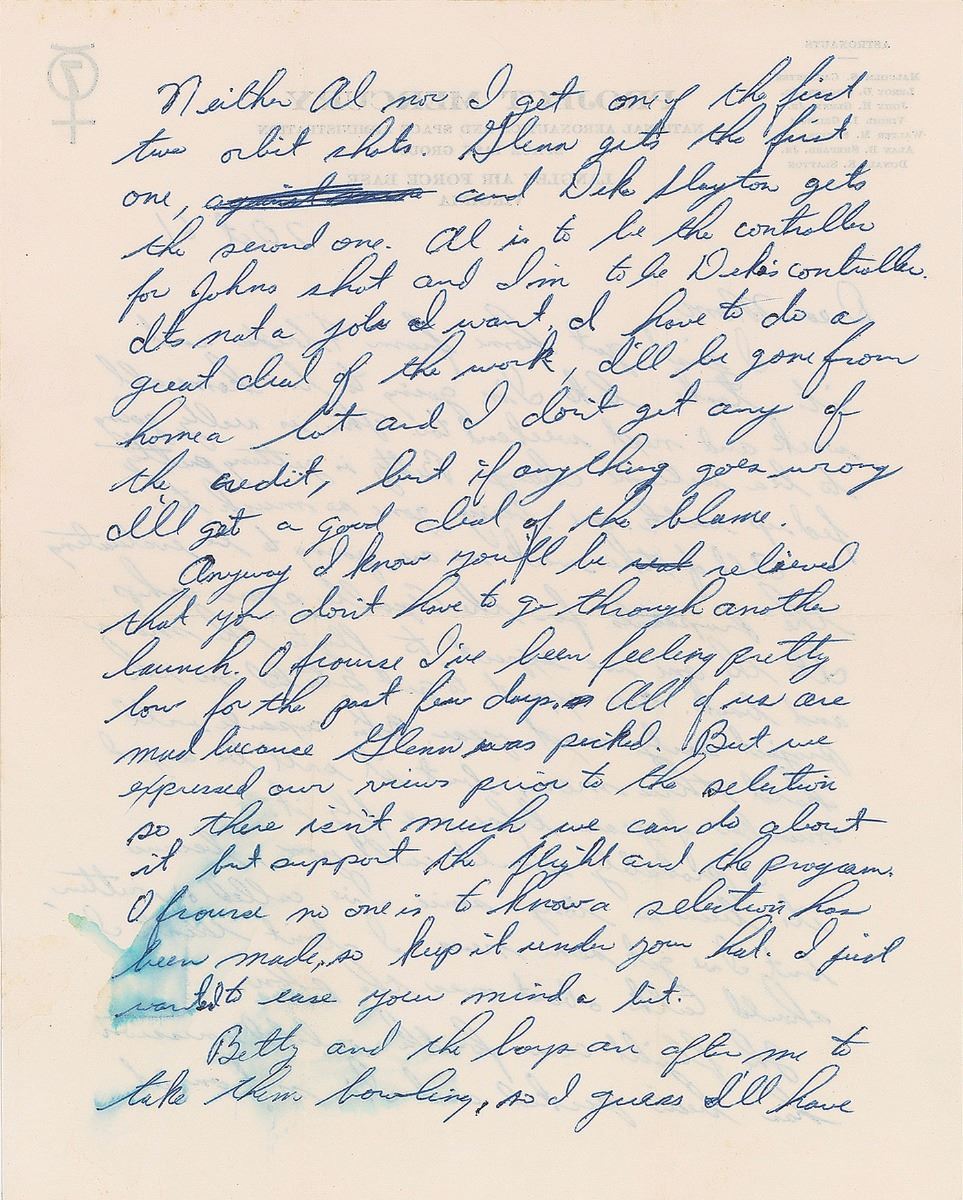 Neither Al nor I get one of the first
two orbit shots. Glenn gets the first
one, and Deke Slayton gets
the second one. Al is to be the controller
for Johns shot and I'm to be Deke's controller.
Its not a job I want. I have to do a
great deal of the work, I'll be gone from
home a lot and I don't get any of
the credit, but if anything goes wrong
I'll get a good deal of the blame.
Anyway I know you'll be relieved
that you don't have to go through another
launch. Of course I've been feeling pretty
low for the past few days. All of us are
mad because Glenn was picked. But we
expressed our views prior to the selection
so there isn't much we can do about
it but support the flight and the program.
Of course no one is to know a selection has
been made, so keep it under your hat. I just
wanted to ease your mind a bit.
Betty and the boys are after me to
take them bowling, so I guess I'll have